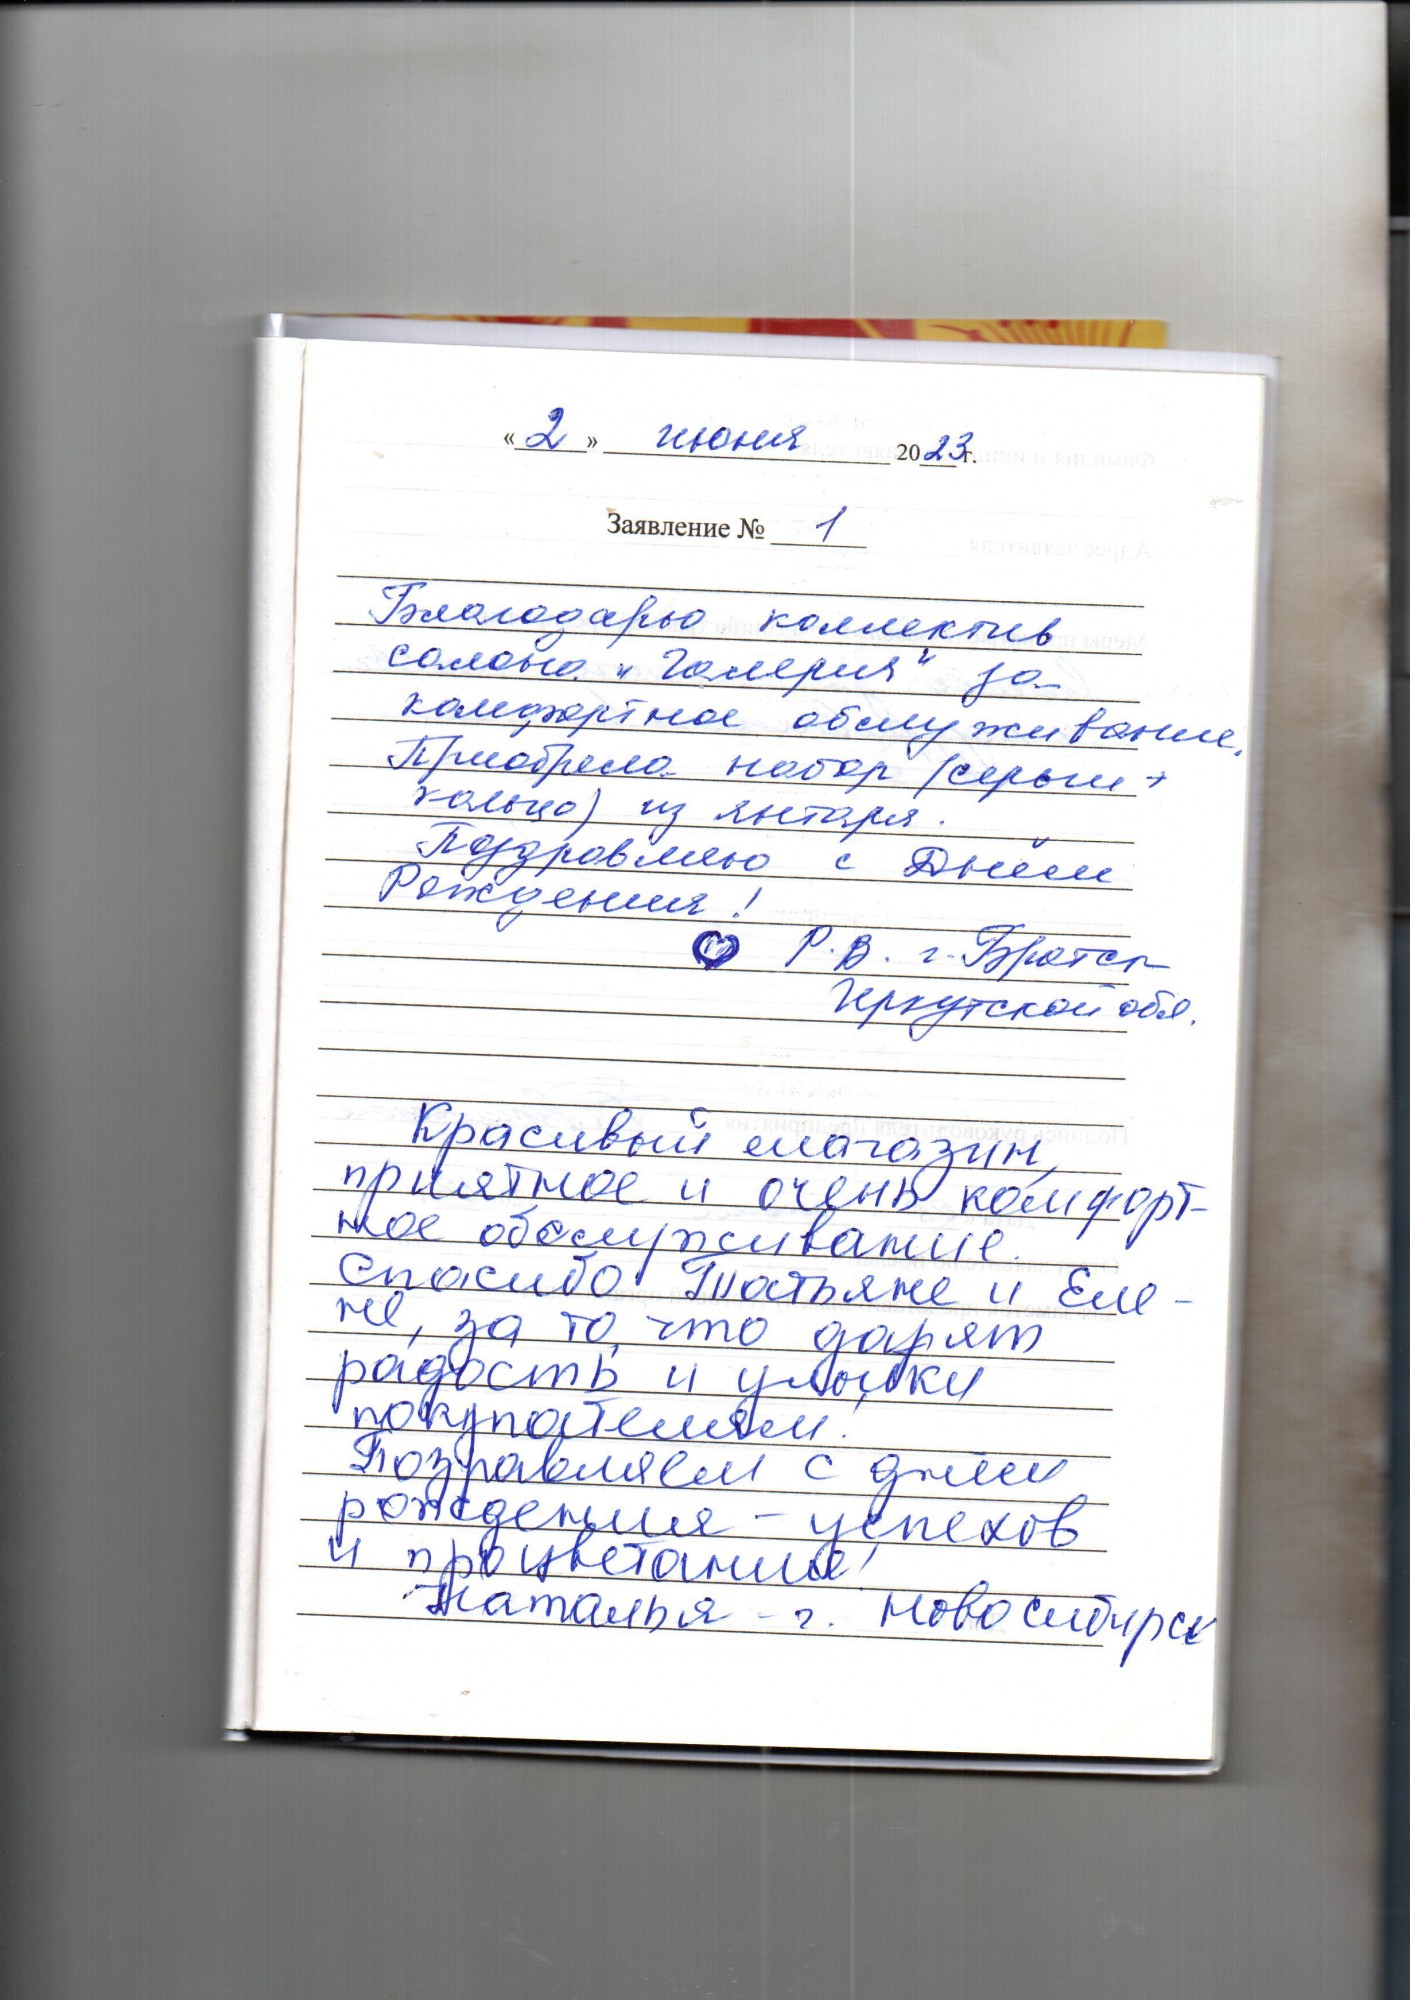 «2» июня 2023 г.
Заявление № 1
Благодарю коллектив
салона "Галерея" за
комфортное обслуживание.
Приобрела набор (серьги +
кольцо) из янтаря.
Поздравляю с Днём
Рождения!
Р.В. г. Братск
Иркутской обл.
Красивый магазин,
приятное и очень комфорт-
ное обслуживание.
Спасибо Татьяне и Еле-
не, за то, что дарят
радость и улыбки
покупателям!
Поздравляем с днём
рождения - успехов
и процветания!
Наталья - г. Новосибирск